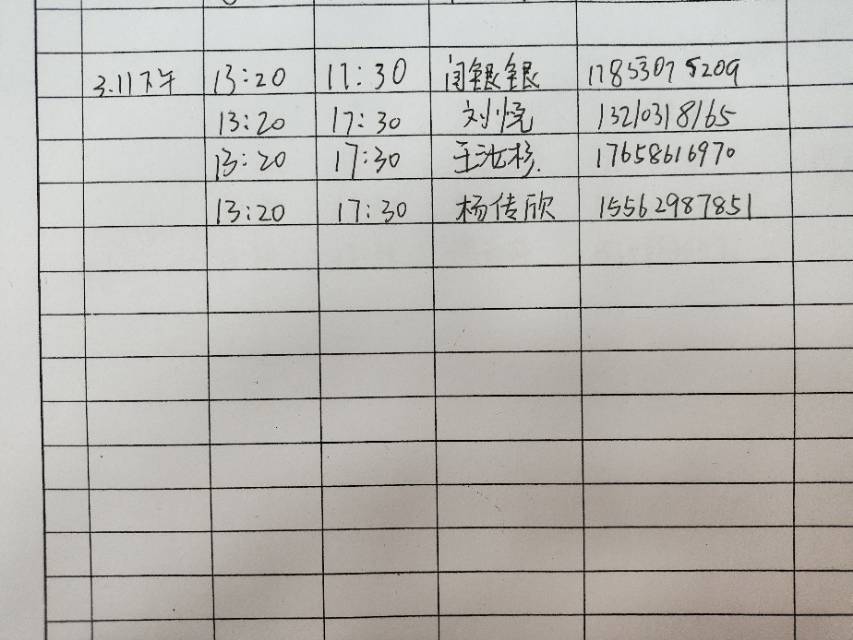 3.11下午 13:20 17:30 闫银银 17853075209
13:20 17:30 刘悦 13210318165
13:20 17:30 王 杉 17658616970
13:20 17:30 杨传欣 15562987851